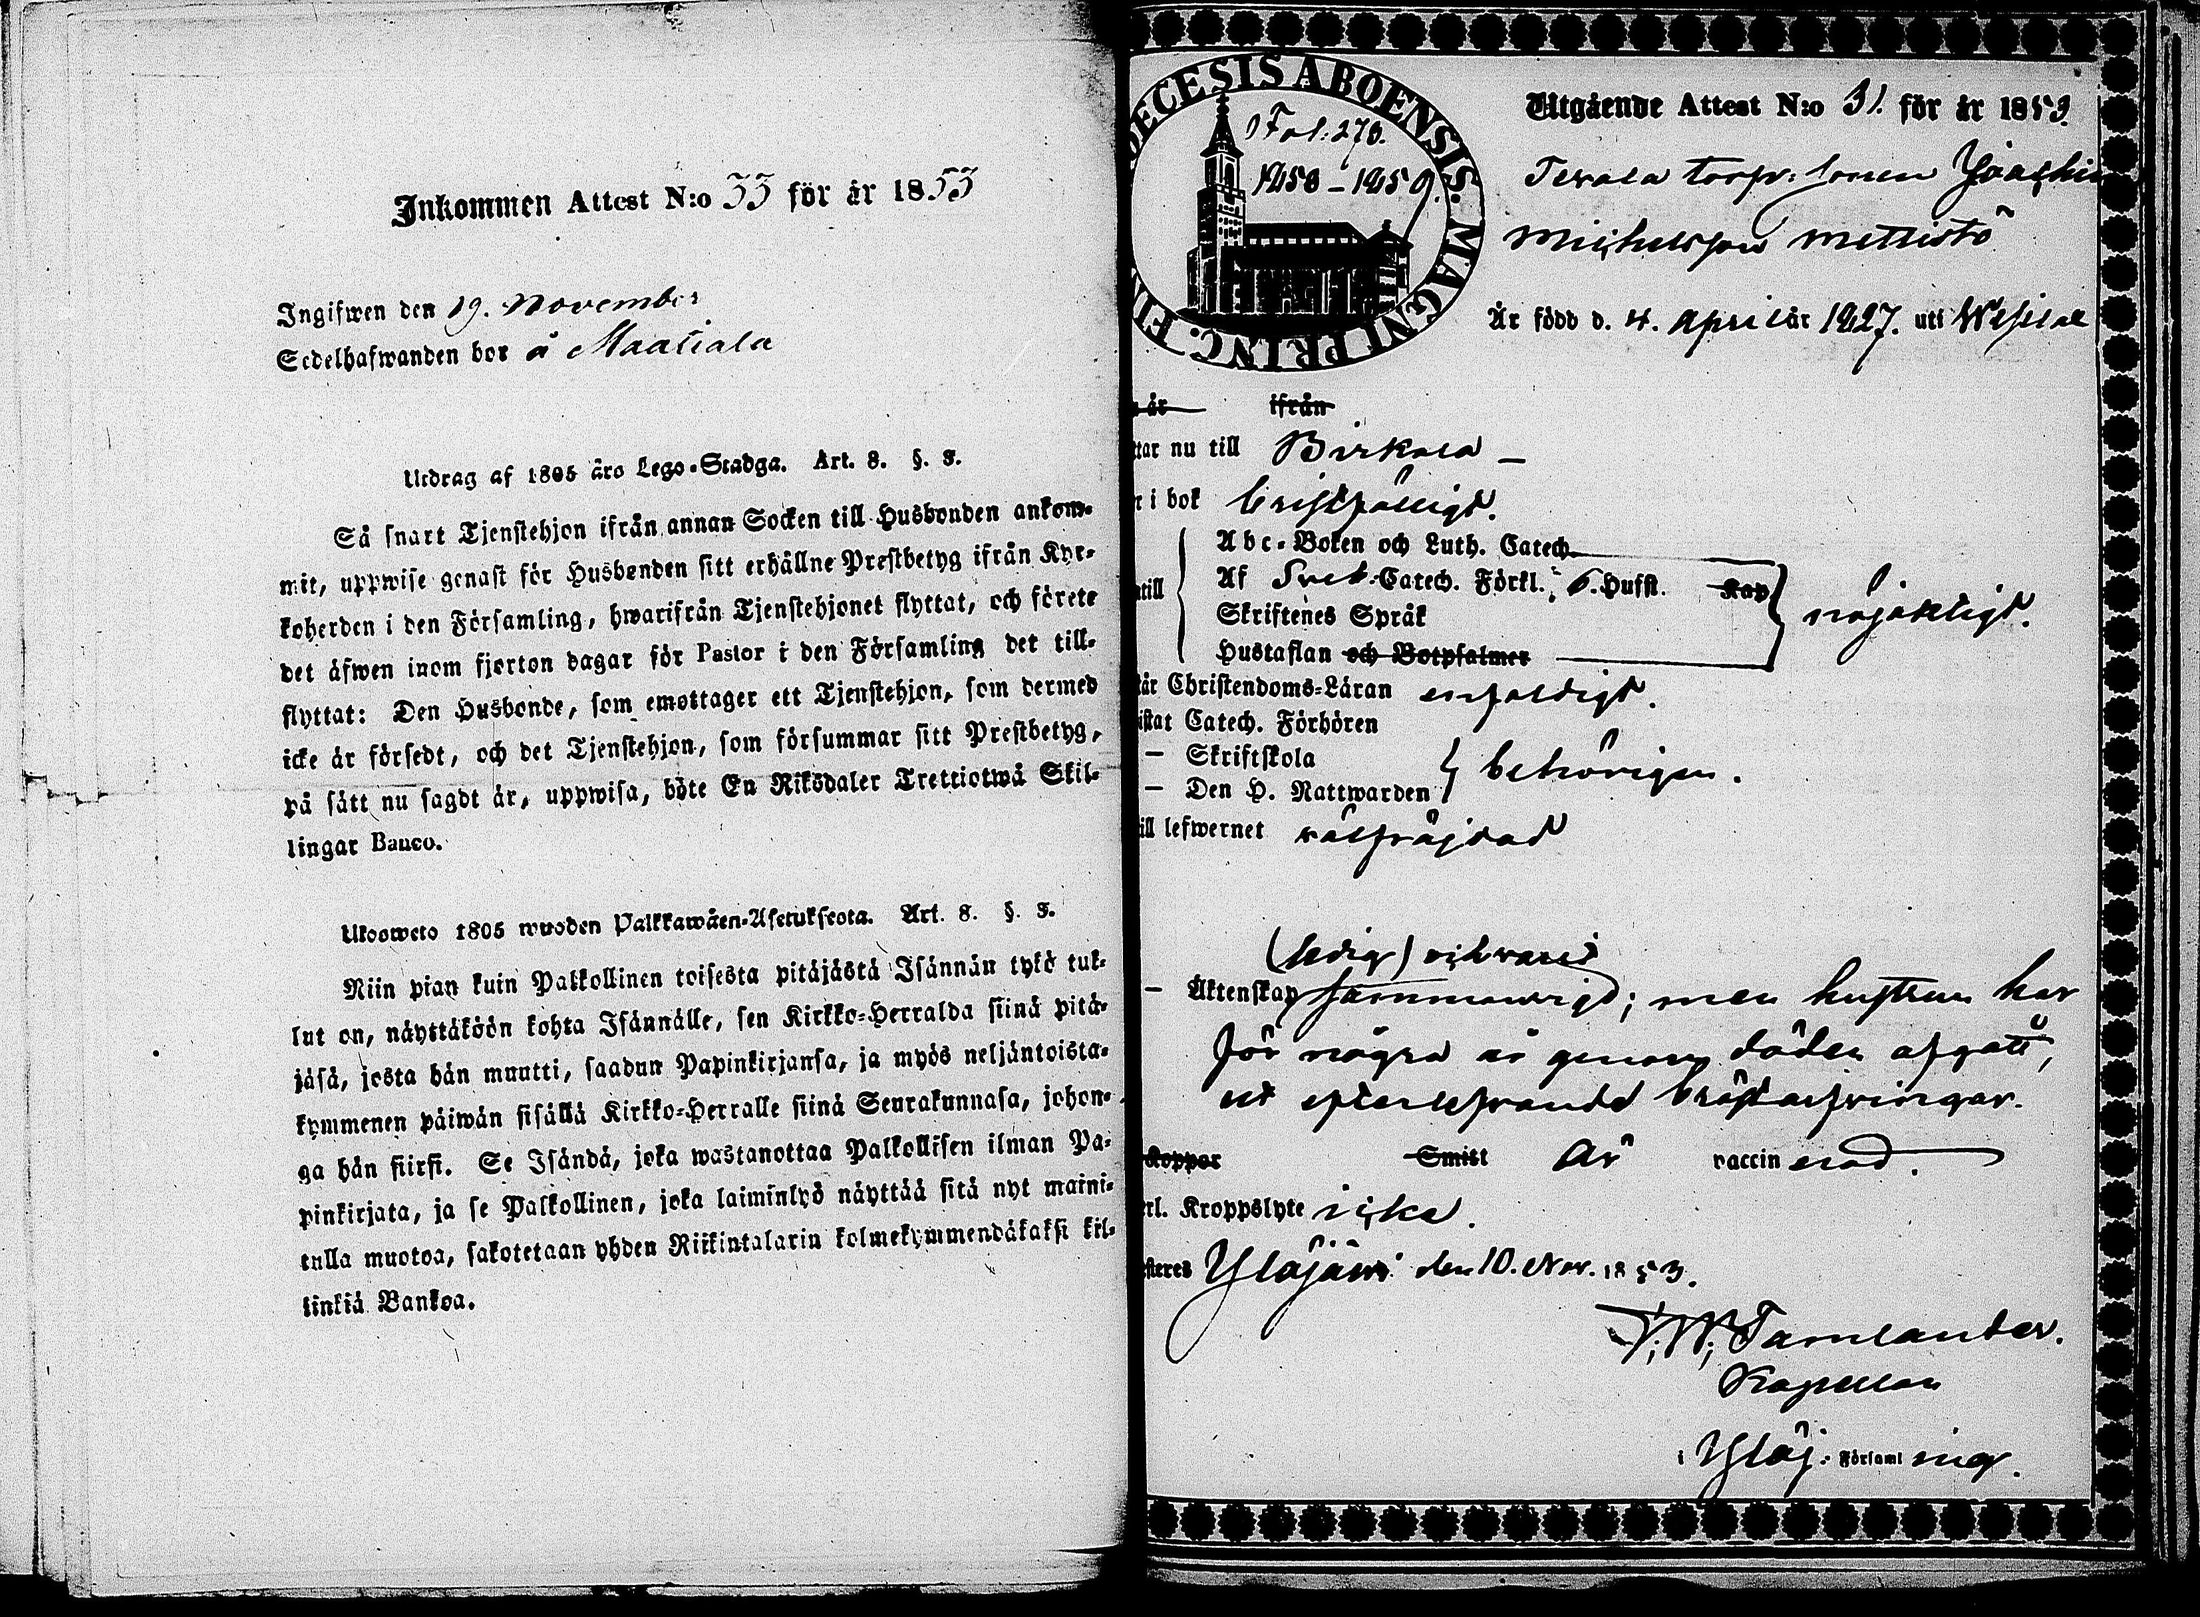 Inkommen Attest N:o 33 för år 1853
Ingifwen den 19. November
Sedelhafwanden bor å Maatiala
Utdrag af 1805 års Lego-Stadga. Art. 8. §. 3.
Så snart Tjenstehjon ifrån annan Socken till Husbonden ankom-
mit, uppwise genast för Husbonden sitt erhållne Prestbetyg ifrån Kyr-
koherden i den Församling, hwarifrån Tjenstehjonet flyttat, och förete
det äfwen inom fjorton dagar för Pastor i den Församling det till-
flyttat: Den Husbonde, som emottager ett Tjenstehjon, som dermed
icke är försedt, och det Tjenstehjon, som försummar sitt Prestbetyg,
på sätt nu sagdt är, uppwisa, böte En Riksdaler Trettiotwå Skil-
lingar Banco.
Ulosweto 1805 wuoden Palkkawäen-Asetuksesta. Art. 8. §. 3.
Niin pian kuin Palkollinen toisesta pitäjästä Isännän tykö tul-
lut on, näyttäköön kohta Isännälle, sen Kirkko-Herralda siinä pitä-
jäsä, josta hän muutti, saadun Papinkirjansa, ja myös neljäntoista-
kymmenen päiwän sisällä Kirkko-Herralle siinä Seurakunnasa, johon-
ga hän siirsi. Se Isändä, joka wastanottaa Palkollisen ilman Pa-
pinkirjata, ja se Palkollinen, joka laiminlyö näyttää sitä nyt maini-
tulla muotoa, sakotetaan yhden Riikintalarin kolmekymmendäkaksi kil-
linkiä Bankoa.
DECESIS ABOENSIS. MAGNI PRINC. FIN
Fol. 270.
1853 - 1859.
Utgående Attest N:o 31. för år 1853.
torp: sonen Joachim
Michelsson Mettistö
Är född d. 4. April år 1827. uti
är ifrån
ttar nu till Birkala
r i bok
Abc-Boken och Luth. Catech.
till Af Sveb. Catech. Förkl. Husst. Kap
Skriftenes Språk
Hustaflan och Botpsalmer
nöjaktigt.
tår Christendoms-Läran enfaldigt.
istat Catech. Förhören
— Skriftskola
— Den H. Nattwarden
behörigen.
till lefwernet välfräjdad
(ledig)
— Äktenskap men hustrun har
för några år genom döden afgått,
ut efterlefvande bröstarfvingar.
Koppor Smitt är vaccinerad.
rl. Kroppslyte icke.
steres Ylöjärvi den 10. Nov. 1853.
Tamlander.
Kapellan
i Ylöj. Församling.